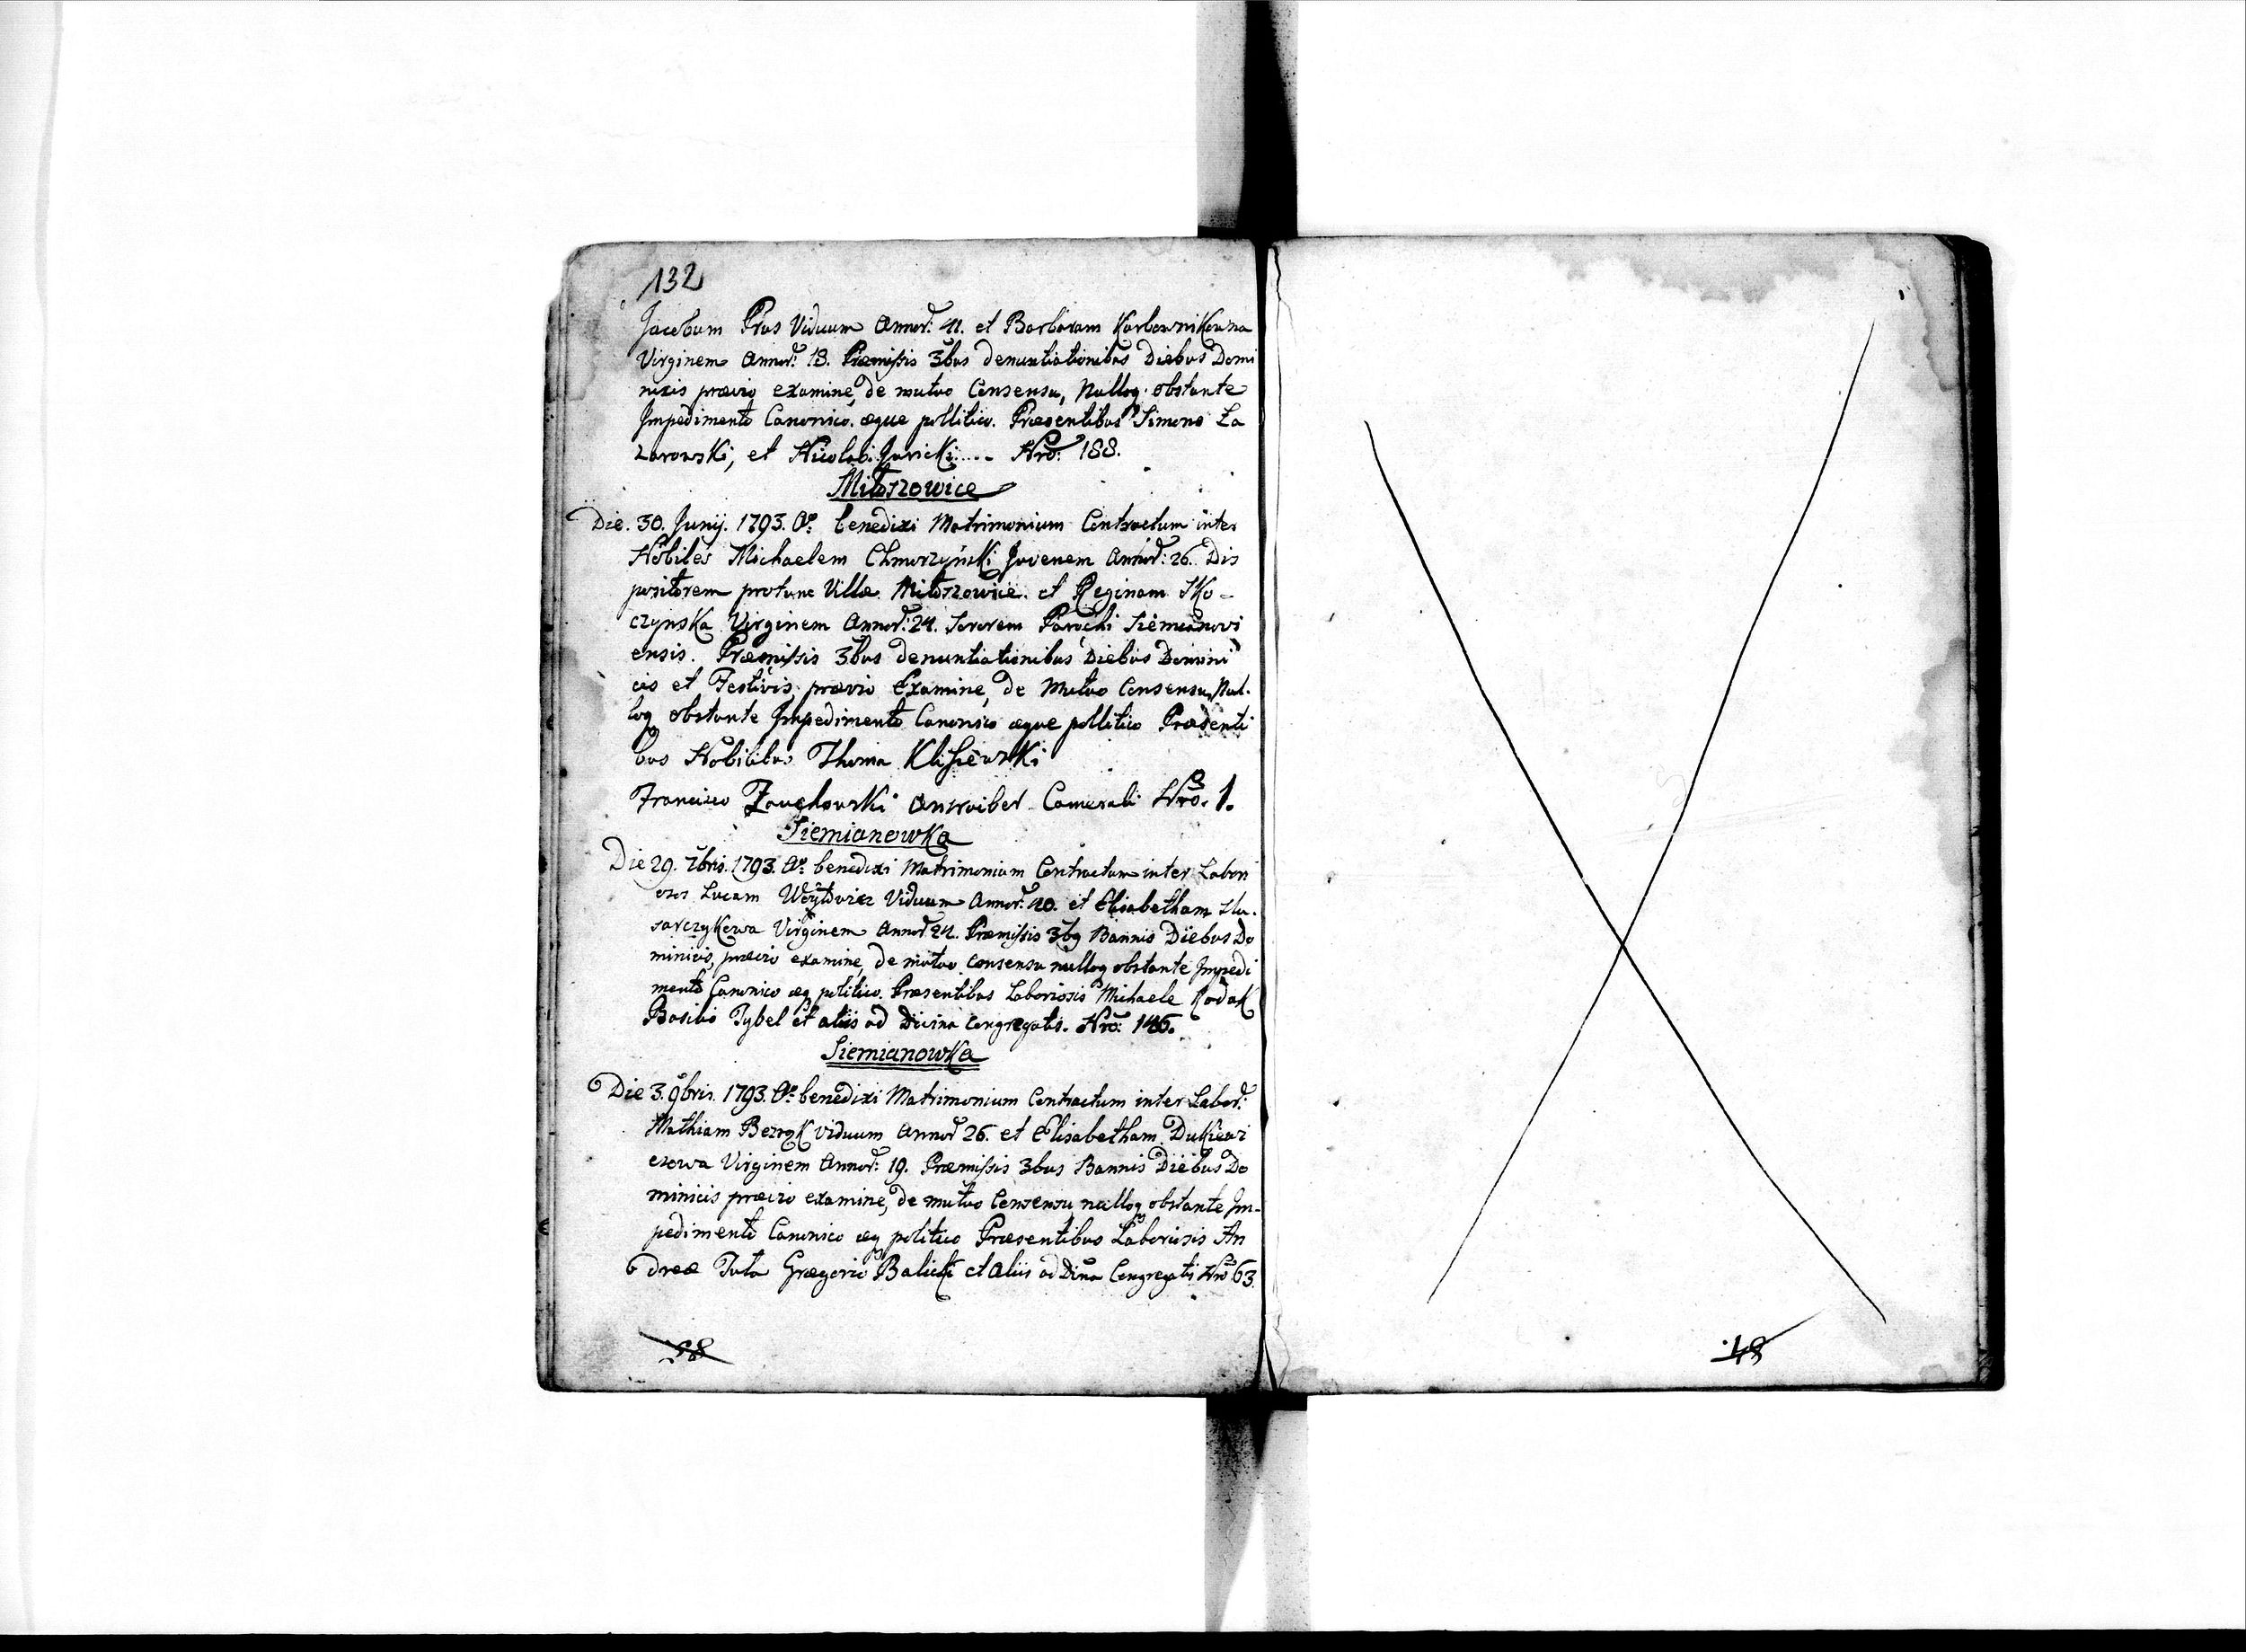 132
Jacobum Prus Viduum Annor: 41. et Barbaram Karbownikowna
Virginem Annor: 18. Præmissis 3bus denuntiationibus Diebus Domi
nicis prævio examine, de mutuo Consensu, Nulloq. obstante
Impedimento Canonico. æque pollitico. Præsentibus Simone La
zarowski, et Nicolao Junicki.... Nro: 188.
Miloszowice
Die. 30. Junij. 1793. Ao: benedixi Matrimonium Contractum inter
Nobiles Michaelem Chmorzyński Juvenem Annor: 26. Dis
positorem protunc Villæ Miloszowice. et Reginam Sko-
czynska Virginem Annor: 24. Sororem Parochi Siemianovi
ensis. Præmissis 3bus denuntiationibus Diebus Domini
cis et Festivis, prævio Examine, de Mutuo Consensu, Nul-
loq obstante Impedimento Canonico æque pollitico Præsenti
bus Nobilibus Thoma Klissewski
Francisco Zawadowski Camerali Nro. 1.
Siemianowka
Die 29. 7bris. 1793. Ao: benedixi Matrimonium Contractum inter Labori
osos Lucam Woytowicz Viduum Annor: 40. et Elisabetham Slu-
sarczykowa Virginem Annor 24. Præmissis 3bq Bannis Diebus Do
minicis, prævio examine, de mutuo consensu nulloq obstante Impedi
mento Canonico æq politico. Præsentibus Laboriosis Michaele Kodak
Basilio Tybel et aliis ad Divina Congregatis. Nro: 146.
Siemianowka
Die 3. 9bris. 1793. Ao: benedixi Matrimonium Contractum inter Labor:
Mathiam Bezrąk viduum Annor 26. et Elisabetham Dukiewi
czowa Virginem Annor: 19. Præmissis 3bus Bannis Diebus Do
minicis prævio examine, de mutuo Consensu nulloq obstante Im-
pedimento Canonico æq politico Præsentibus Laboriosis An
dreæ Tuta Gregorio Balicki et aliis ad Dina Congregatis Nro 63.
48